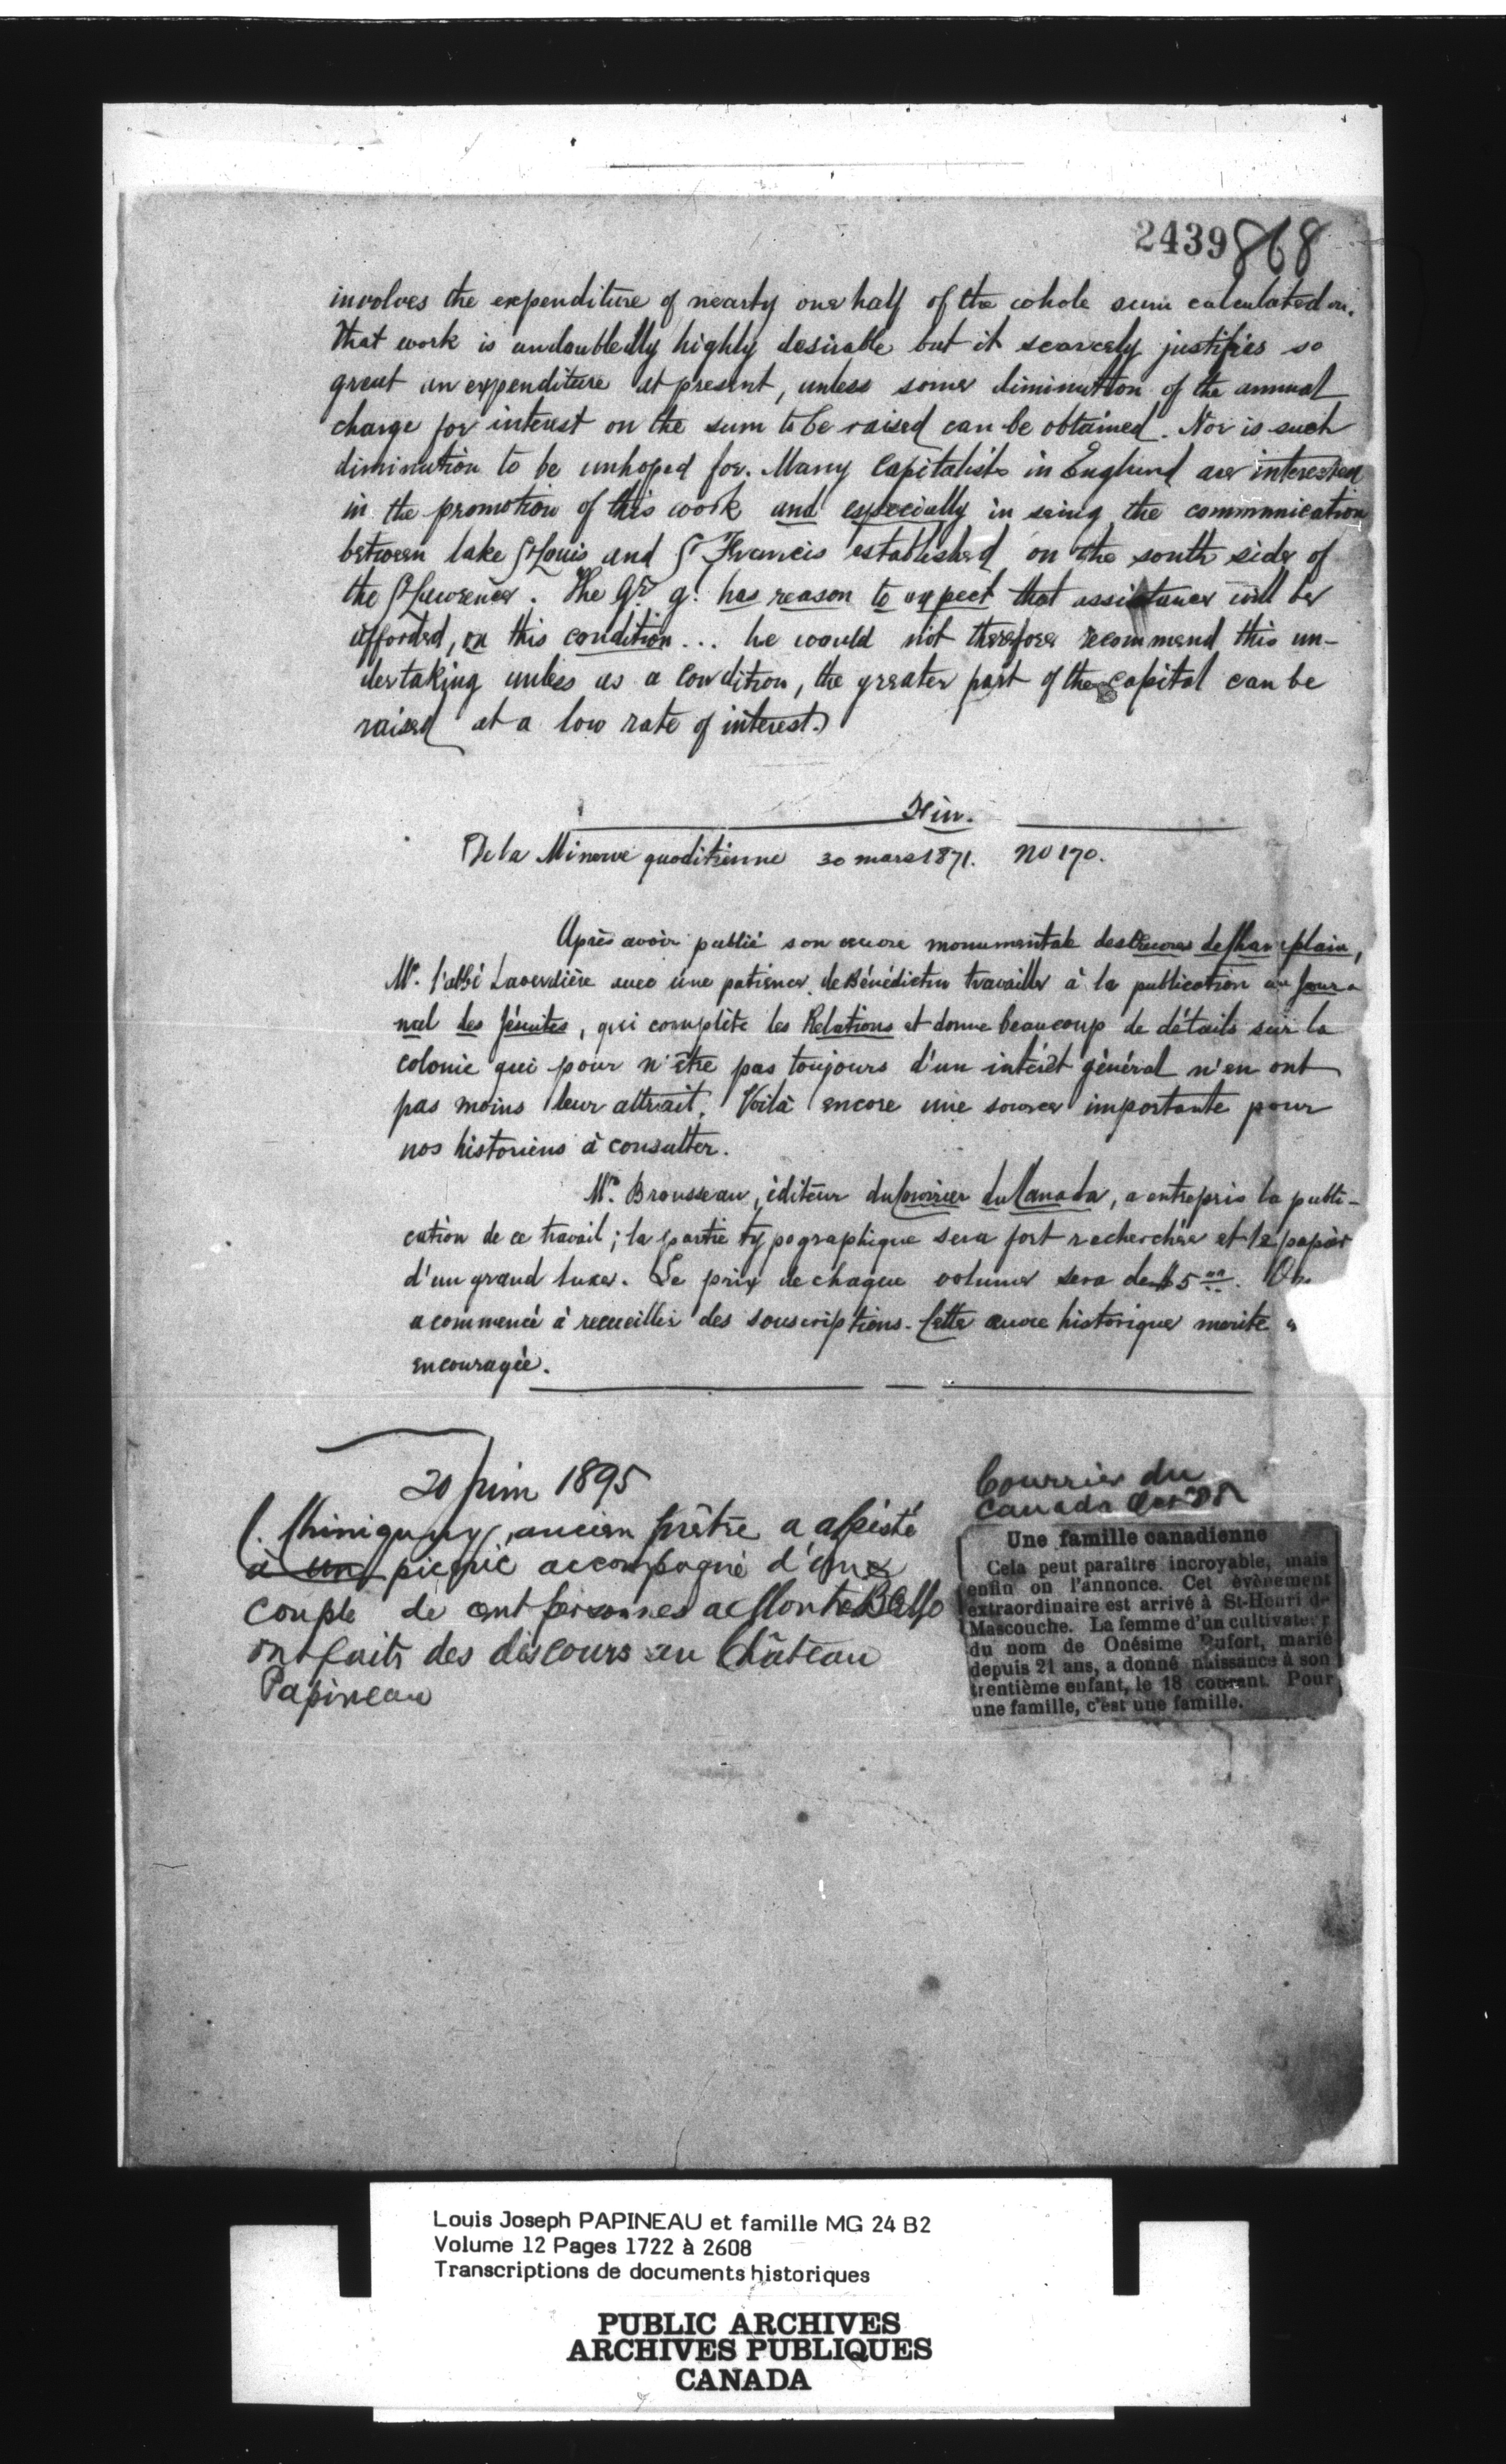 2439 868
involves the expenditure of nearly one half of the whole sum calculated on.
That work is undoubtedly highly desirable but it scarcely justifies so
great an expenditure at present, unless some diminution of the annual
charge for interest on the sum to be raised can be obtained. Nor is such
diminution to be unhoped for. Many Capitalists in England are interested
in the promotion of this work and especially in seing the communication
between lake St Louis and St Francis established on the south side of
the St Lawrence. The Gr. g. has reason to expect that assistance will be
afforded, on this condition... he would not therefore recommend this un-
dertaking unless as a Condition, the greater part of the capital can be
raised at a low rate of interest.
Fin.
De la Minerve quoditienne 30 mars 1871. No 170.
Après avoir publié son œuvre monumentale des Œuvres de Champlain,
Mr. l'abbé Laverdière avec une patience de Bénédictin travaille à la publication du Jour-
nal des Jésuites, qui complète les Relations et donne beaucoup de détails sur la
colonie qui pour n'être pas toujours d'un intérêt général n'en ont
pas moins leur attrait. Voilà encore une source importante pour
nos historiens à consulter.
Mr. Brousseau, éditeur du Courrier du Canada, a entrepris la publi-
cation de ce travail; la partie typographique sera fort recherchée et le papier
d'un grand luxe. Le prix de chaque volume sera de $5 00. On
a commencé à recueillir des souscriptions. Cette œuvre historique mérite
encouragée.
20 juin 1895
C. Chiniquy, ancien prêtre a assisté
à un picnic accompagné d'une
couple de cent personnes a MonteBello
ont faits des discours au Château
Papineau
Courrier du
Canada
Une famille canadienne
Cela peut paraitre incroyable, mais
enfin on l'annonce. Cet évènement
extraordinaire est arrivé à St-Henri de
Mascouche. La femme d'un cultivateur
du nom de Onésime Dufort, marié
depuis 21 ans, a donné naissance à son
trentième enfant, le 18 courant. Pour
une famille, c'est une famille.
Louis Joseph PAPINEAU et famille MG 24 B2
Volume 12 Pages 1722 à 2608
Transcriptions de documents historiques
PUBLIC ARCHIVES
ARCHIVES PUBLIQUES
CANADA